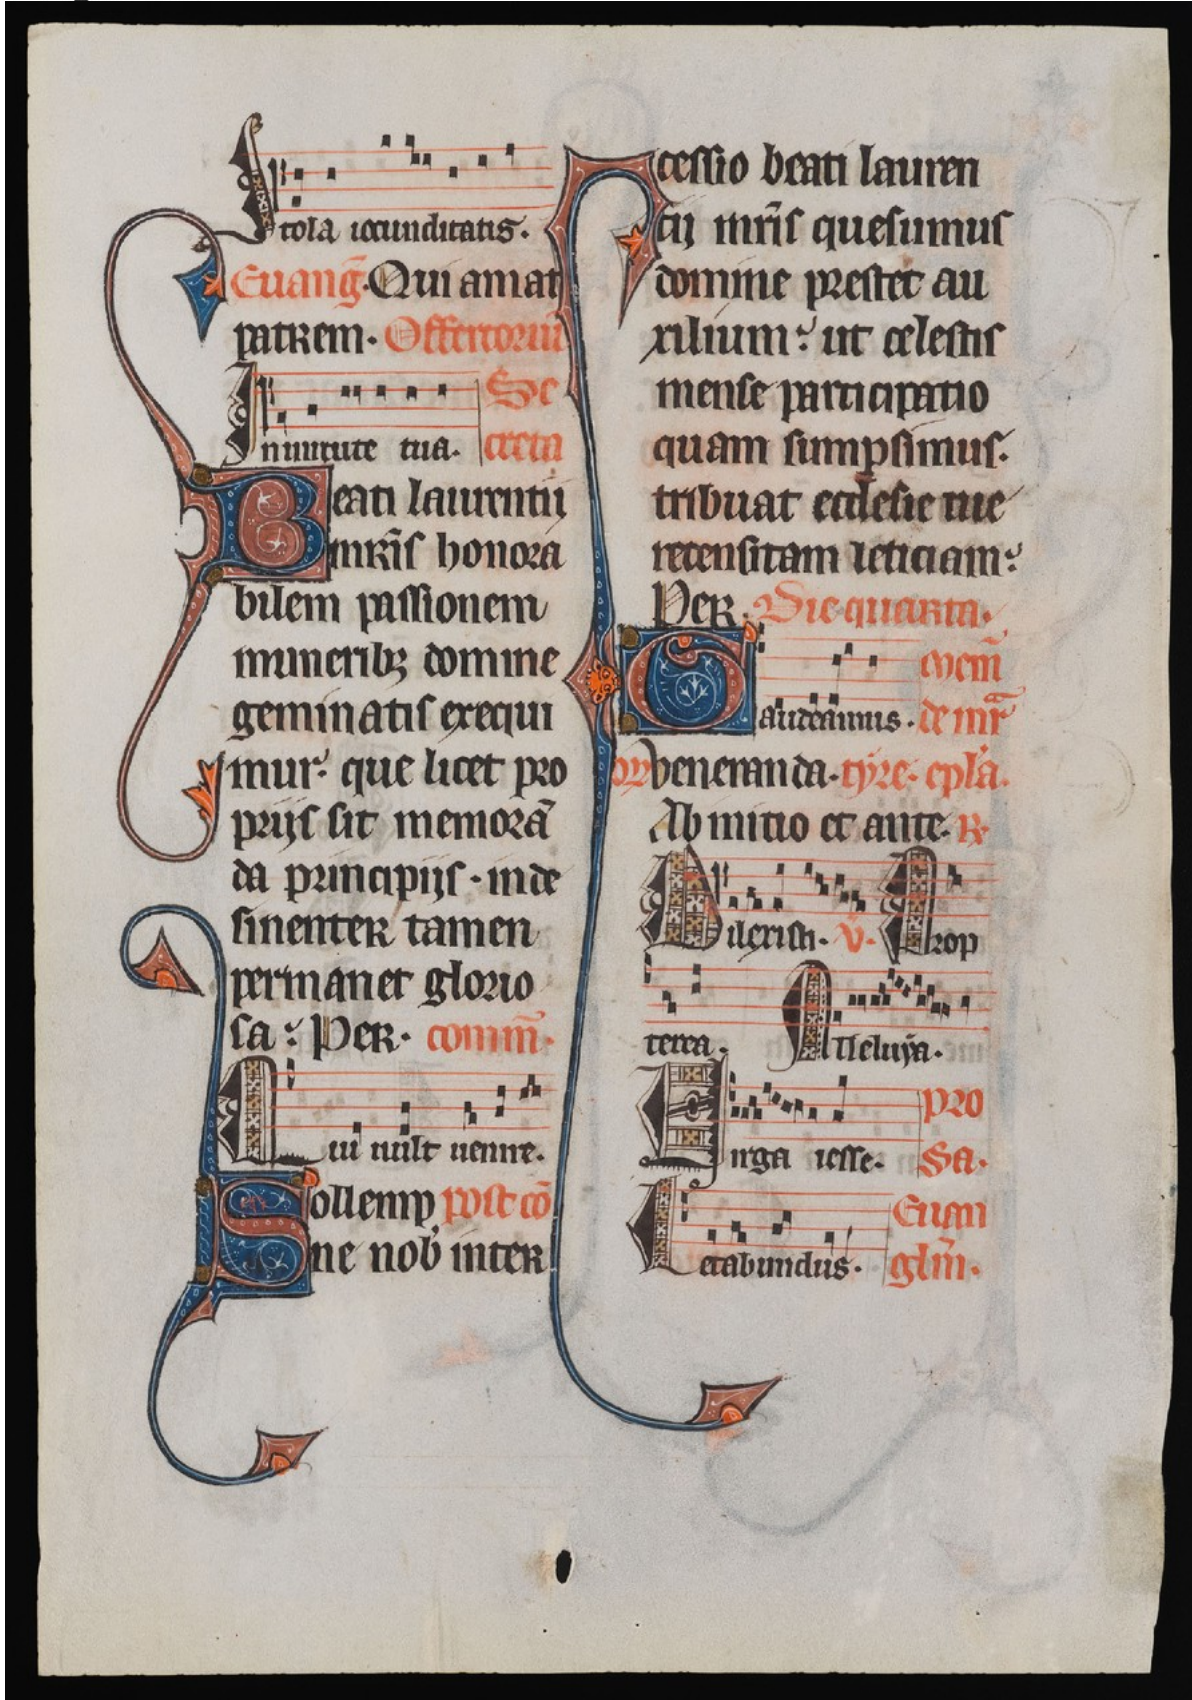 Stola iocunditatis.
Euang̃. Qui amat
patrem. Offertoriũ
In uirtute tua. Se
creta
Beati laurentij
mr̃is honora
bilem passionem
muneribꝫ domine
geminatis exequi
mur. que licet pro
prijs sit memorã
da principijs. inde
sinenter tamen
permanet glorio
sa. Per. com̃m.
Qui uult uenire.
Sollemp post cõ
ne nob̾ inter
cessio beati lauren
cij mr̃is quesumus
domine prestet au
xilium. ut celestis
mense participatio
quam sumpsimus.
tribuat ecclesie tue
recensitam leticiam.
Per. Die quarta.
Gaudeamus. de mr̃
veneranda. tyre. epl̃a.
Ab initio et ante. R.
Dilexisti. V. Prop
terea. Alleluya.
Virga iesse. Pro
sa.
Letabundus. Euan
gl̃m.